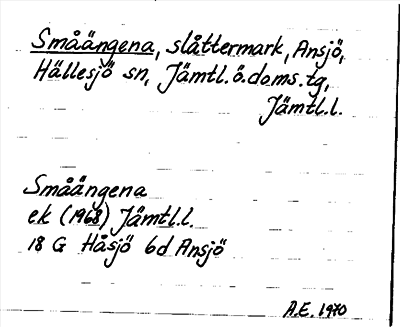 Småängena, slåttermark, Ansjö,
Hällesjö sn, Jämtl.ö.doms.tg,
Jämtl.l.
Småängena
ek (1968) Jämtl.l.
18 G Håsjö 6d Ansjö
A.E. 1970